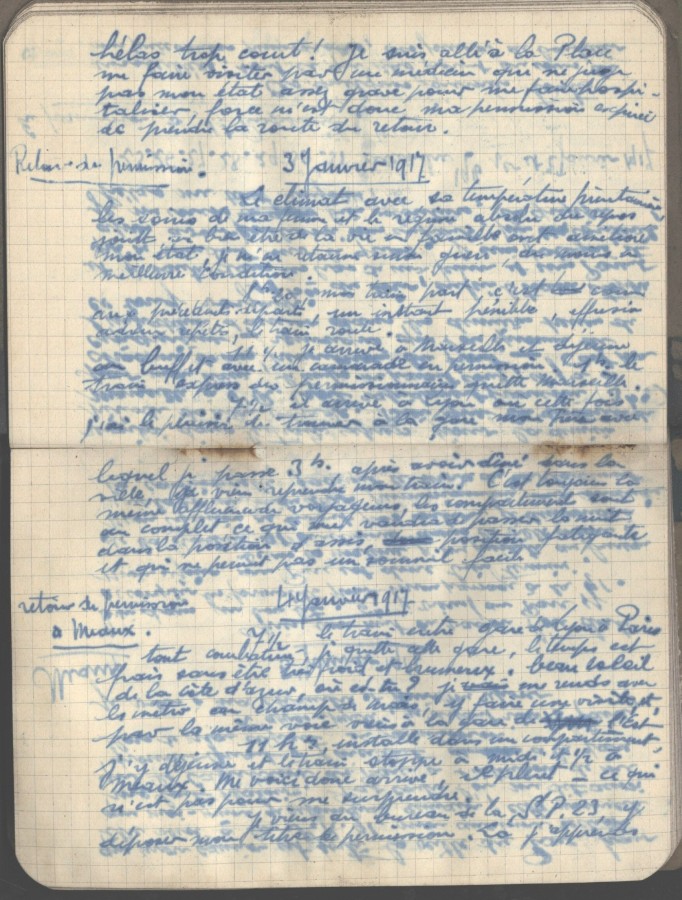 hélas trop court ! Je suis allé à la Place
me faire visiter par un médecin qui ne juge
pas mon état assez grave pour me faire hospi-
taliser, force m'est donc, ma permission expirée
de prendre la route du retour.
Retour de permission. 3 Janvier 1917
Le climat avec sa température printanière
les soins de ma et le régime absolu du repos
joint au bien être de la vie en famille ont amélioré
mon état, je m'en retourne sinon guéri, du moins en
meilleure condition.
mon train part, c'est comme
aux précédents départs, un instant pénible, effusion
adieux répétés, le train roule.
j'arrive à Marseille et déjeune
au buffet avec un camarade en permission. le
train express des permissionnaires quitte Marseille.
arrive à Lyon où cette fois
j'ai le plaisir de trouver à la gare mon père avec
lequel je passe 3 h. après avoir dîné dans la
ville, je viens reprendre mon train. C'est toujours la
même affluence de voyageurs, les compartiments sont
au complet ce qui me vaudra de passer la nuit
dans la position assis, position fatigante
et qui ne permet pas un sommeil facile
retour de permission 4 Janvier 1917
à Meaux.
le train entre gare de Lyon à Paris
tout courbaturé, je quitte cette gare, le temps est
frais sans être très froid et brumeux. beau soleil
de la côte d'azur, où es-tu ? je me rends avec
le métro au Champ de Mars y faire une visite et,
par la même voie viens à la gare de l'Est
11 h ½, installé dans un compartiment,
j'y déjeune et le train stoppe à midi à
Meaux. Me voici donc arrivé, il pleut – ce qui
n'est pas pour me surprendre.
Je viens au bureau de la S.P. 23 y
déposer mon titre de permission. Là j'apprends